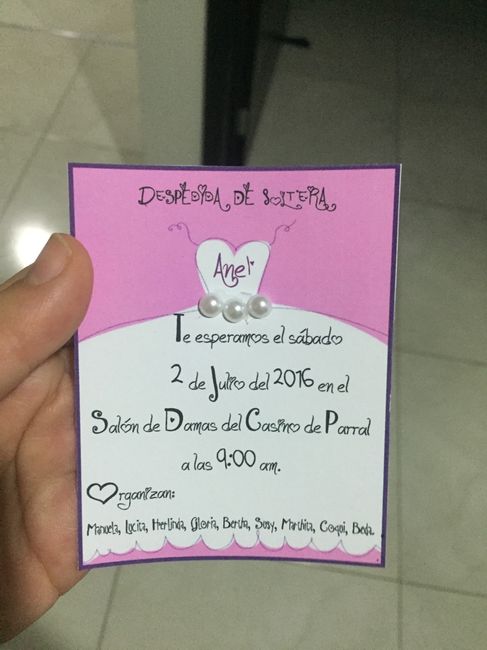 DESPEDIDA DE SOLTERA
Anel
Te esperamos el sábado
2 de Julio del 2016 en el
Salón de Damas del Casino de Parral
a las 9:00 am.
Organizan:
Manuela, Lucita, Herlinda, Gloria, Bertha, Susy, Marthita, Coqui, Beda.